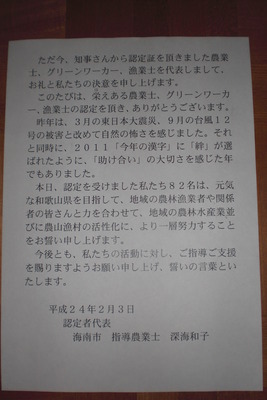 ただ今、知事さんから認定証を頂きました農業
士、グリーンワーカー、漁業士を代表しまして、
お礼と私たちの決意を申し上げます。
このたびは、栄えある農業士、グリーンワーカ
ー、漁業士の認定を頂き、ありがとうございます。
昨年は、3月の東日本大震災、9月の台風12
号の被害と改めて自然の怖さを感じました。それ
と同時に、2011「今年の漢字」に「絆」が選
ばれたように、「助け合い」の大切さを感じた年
でもありました。
本日、認定を受けました私たち82名は、元気
な和歌山県を目指して、地域の農林漁業者や関係
者の皆さんと力を合わせて、地域の農林水産業並
びに農山漁村の活性化に、より一層努力すること
をお誓い申し上げます。
今後とも、私たちの活動に対し、ご指導ご支援
を賜りますようお願い申し上げ、誓いの言葉とい
たします。
平成24年2月3日
認定者代表
海南市 指導農業士 深海和子